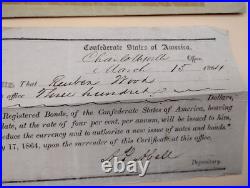 Confederate States of America.
Charlotteville Office,
March 15 1864
That Reuben Wood
office Nine hundred
Dollars,
Registered Bonds, of the Confederate States of America, bearing
date, at the rate of four per cent. per annum, will be issued to him,
duce the currency and to authorize a new issue of notes and
y 17, 1864, upon the surrender of this certificate at this office.
Depositary.